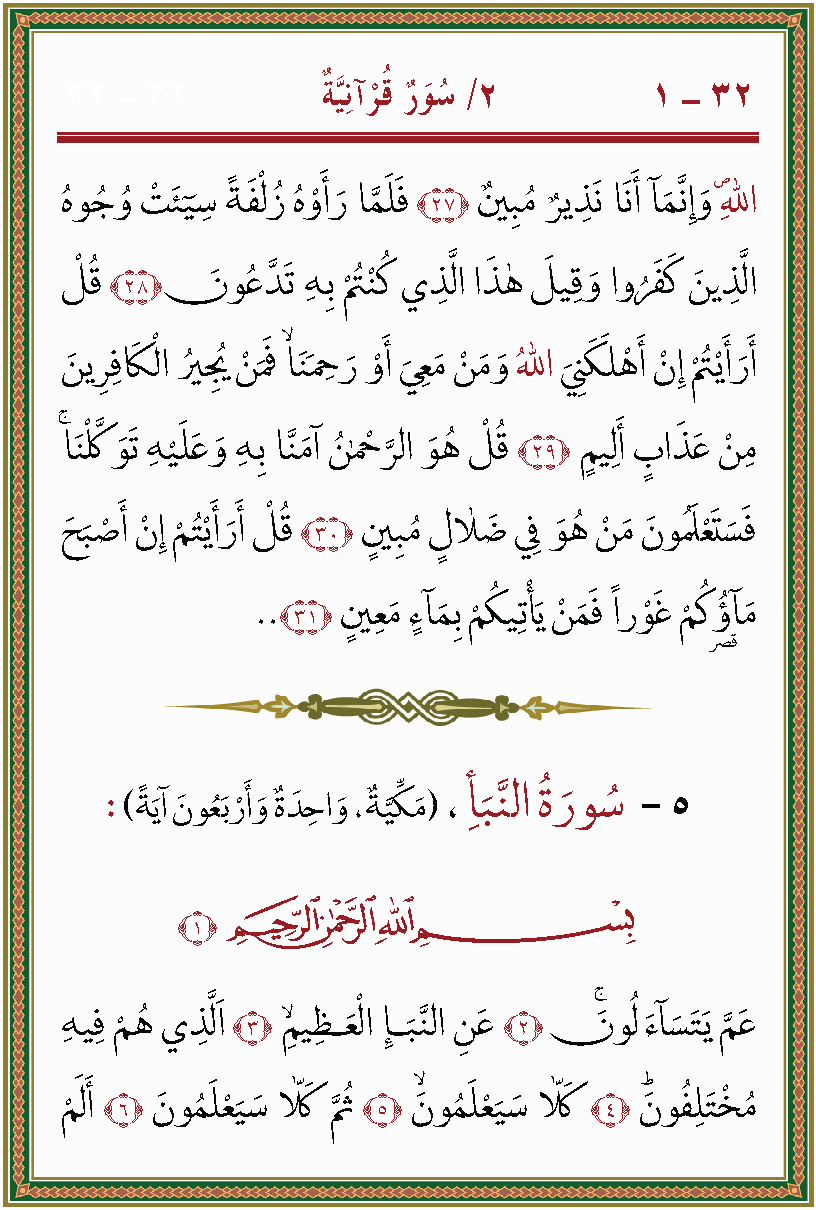 ٣٢ – ١ ٢/ سُوَرٌ قُرْآنِيَّةٌ
اللهِ ۖ وَإِنَّمَآ أَنَا نَذِيرٌ مُبِينٌ ﴿٢٧﴾ فَلَمَّا رَأَوْهُ زُلْفَةً سِيٓـَٔتْ وُجُوهُ
الَّذِينَ كَفَرُوا وَقِيلَ هٰذَا الَّذِي كُنْتُمْ بِهِ تَدَّعُونَ ﴿٢٨﴾ قُلْ
أَرَأَيْتُمْ إِنْ أَهْلَكَنِيَ اللهُ وَمَنْ مَعِيَ أَوْ رَحِمَنَا ۙ فَمَنْ يُجِيرُ الْكَافِرِينَ
مِنْ عَذَابٍ أَلِيمٍ ﴿٢٩﴾ قُلْ هُوَ الرَّحْمٰنُ آمَنَّا بِهِ وَعَلَيْهِ تَوَكَّلْنَا ۚ
فَسَتَعْلَمُونَ مَنْ هُوَ فِي ضَلَالٍ مُبِينٍ ﴿٣٠﴾ قُلْ أَرَأَيْتُمْ إِنْ أَصْبَحَ
مَآؤُكُمْ غَوْراً فَمَنْ يَأْتِيكُمْ بِمَآءٍ مَعِينٍ ﴿٣١﴾..
قصر
٥ – سُورَةُ النَّبَأِ ، (مَكِّيَّةٌ، وَاحِدَةٌ وَأَرْبَعُونَ آيَةً) :
بِسْمِ ٱللهِ ٱلرَّحْمٰنِ ٱلرَّحِيمِ ﴿١﴾
عَمَّ يَتَسَآءَلُونَ ۚ ﴿٢﴾ عَنِ النَّبَإِ الْعَظِيمِ ۙ ﴿٣﴾ اَلَّذِي هُمْ فِيهِ
مُخْتَلِفُونَ ۜ ﴿٤﴾ كَلَّا سَيَعْلَمُونَ ۙ ﴿٥﴾ ثُمَّ كَلَّا سَيَعْلَمُونَ ﴿٦﴾ أَلَمْ